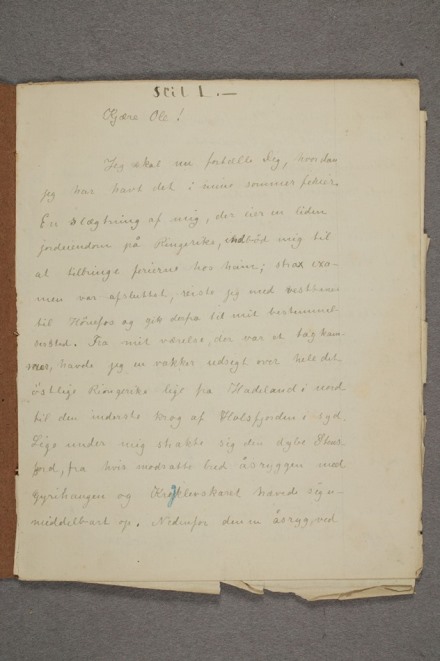 Stil 1.—
Kjære Ole!
Jeg skal nu fortælle Dig, hvordan
jeg har havt det i mine sommerferier.
En slægtning af mig, der eier en liden
jordeiendom på Ringerike, indbød mig til
at tilbringe ferierne hos ham; strax exa-
men var afsluttet, reiste jeg med
til Hönefos og gik derfra til mit bestemmel-
sessted. Fra mit værelse, der var et tagkam-
mer, havde jeg en vakker udsigt over hele det
östlige Ringerike lige fra Hadeland i nord
til den inderste krog af Holsfjorden i syd.
Lige under mig strakte sig den dybe Steens-
fjord, fra hvis modsatte bred åsryggen med
Gyrihaugen og Krogkleveskaret hævede sig u-
middelbart op. Nedenfor denne åsryg, ved